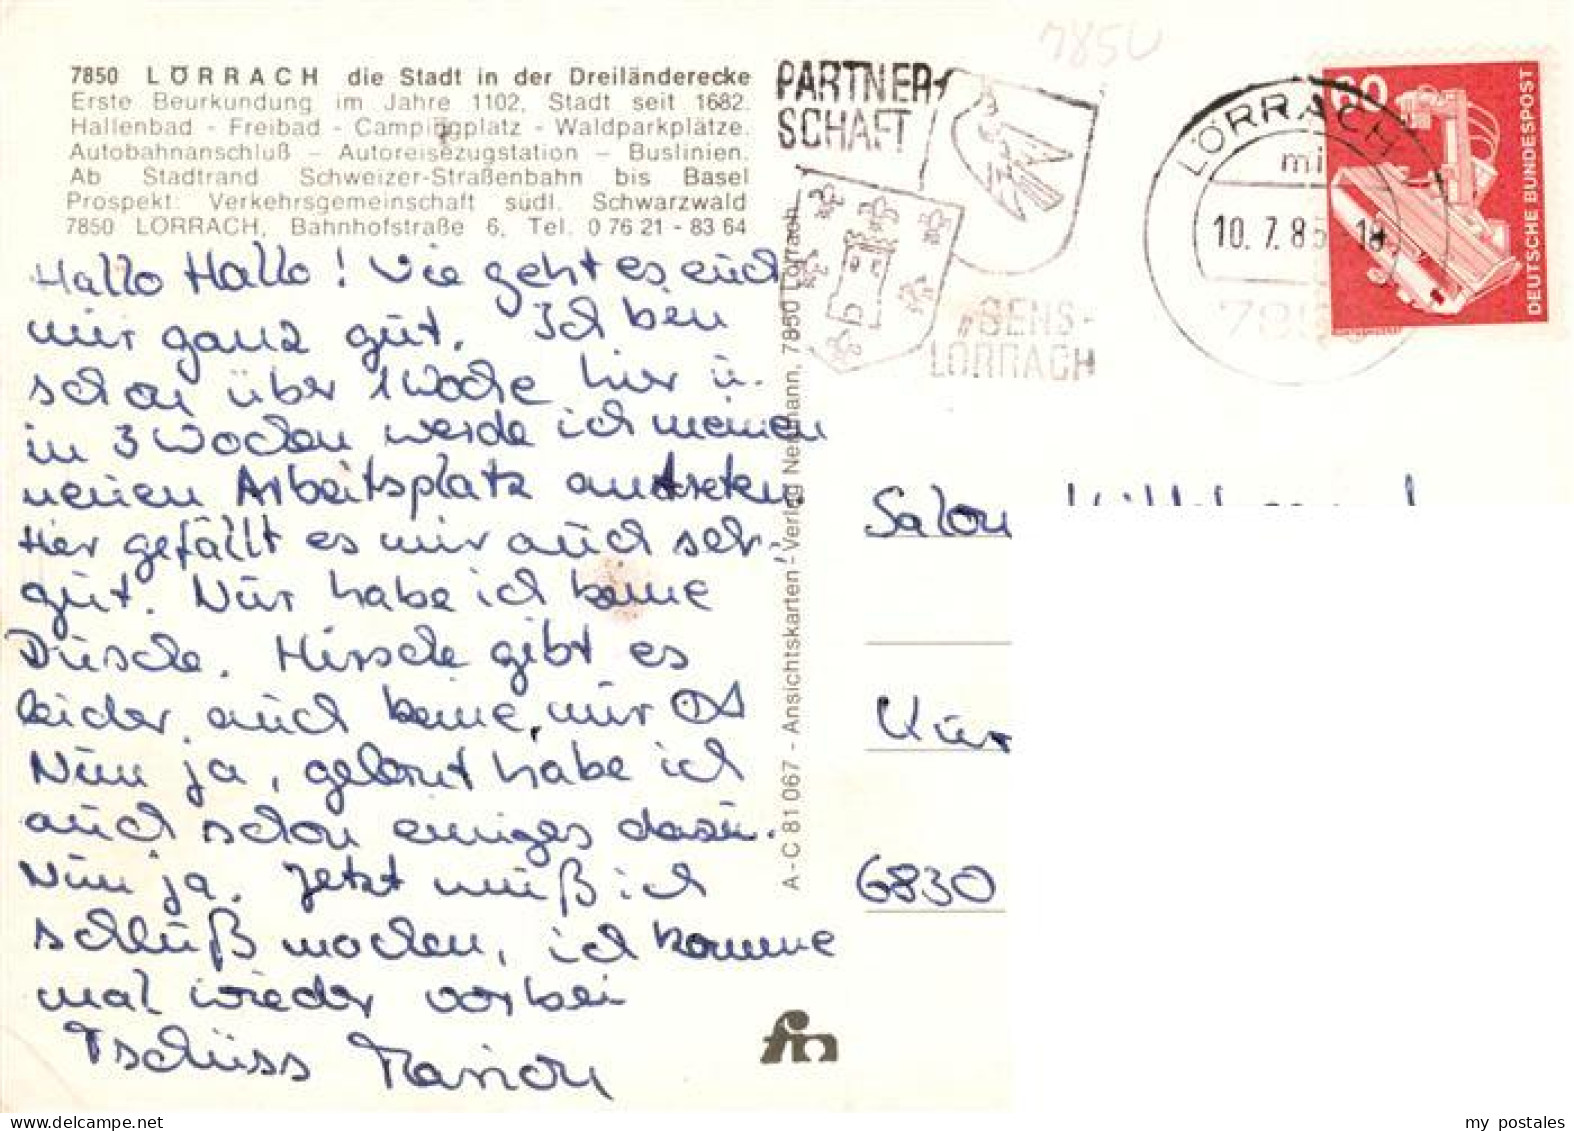 7850 LÖRRACH die Stadt in der Dreiländerecke
Erste Beurkundung im Jahre 1102, Stadt seit 1682.
Hallenbad - Freibad - Campingplatz - Waldparkplätze.
Autobahnanschluß – Autoreisezugstation – Buslinien.
Ab Stadtrand Schweizer-Straßenbahn bis Basel
Prospekt: Verkehrsgemeinschaft südl. Schwarzwald
7850 LÖRRACH, Bahnhofstraße 6, Tel. 0 76 21 - 83 64
Hallo Hallo! Wie geht es euch
mir ganz gut. Ich ben
schon über 1 Woche hier u.
in 3 Wochen werde ich meinen
neuen Arbeitsplatz antreten.
Hier gefällt es mir auch sehr
gut. Nur habe ich keine
Dusche. Hirsche gibt es
leider auch keine, nur
Nun ja, gelernt habe ich
auch schon einiges dazu.
Nun ja. Jetzt muß ich
schluß machen, ich komme
mal wieder vorbei
Tschüss Marion
A - C 81 067 - Ansichtskarten - Verlag Neumann, 7850 Lörrach
fm
7850
PARTNER-
SCHAFT
SENS-
LÖRRACH
LÖRRACH
10. 7. 85 - 18
785
60
DEUTSCHE BUNDESPOST
Salon
6830
my postales